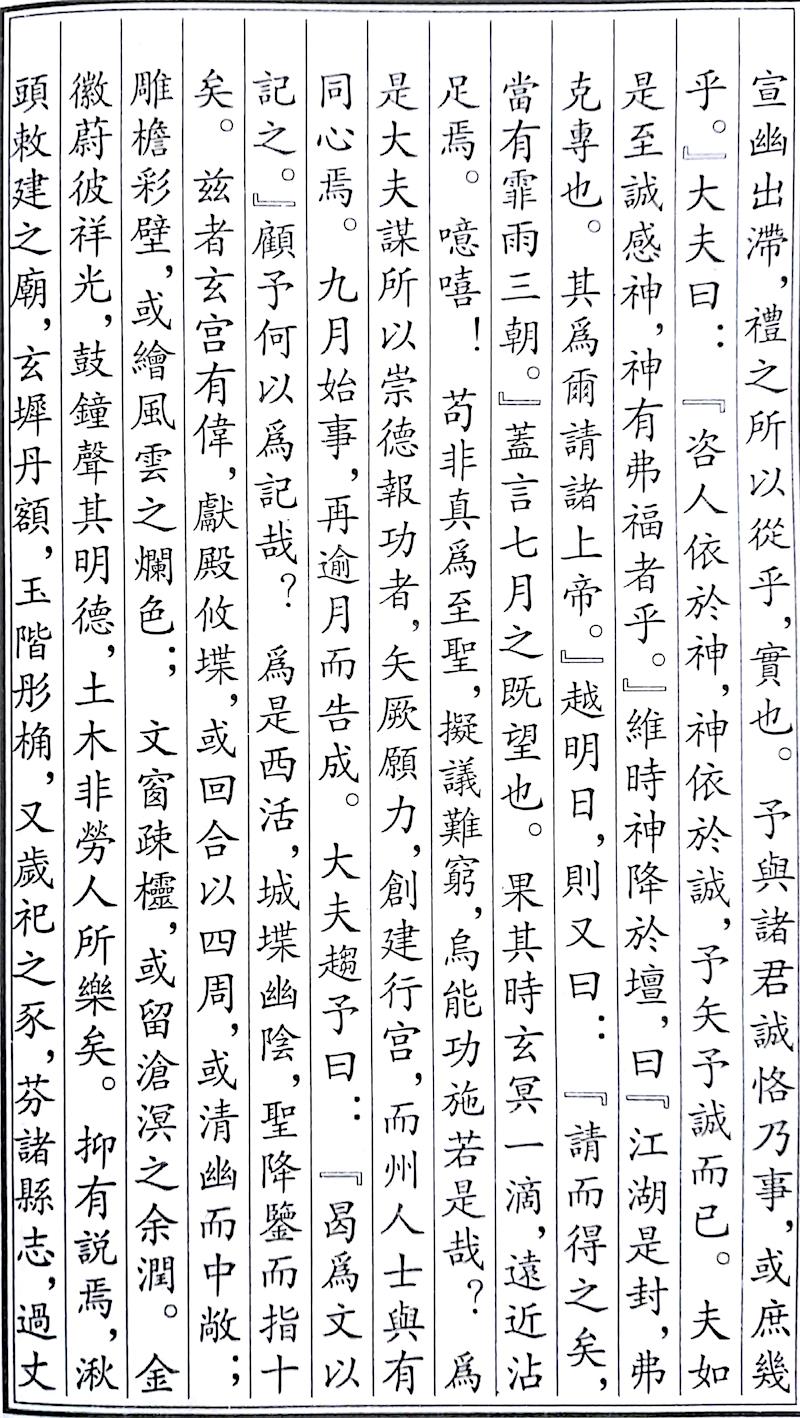 宣幽出滯，禮之所以從乎，實也。予與諸君誠恪乃事，或庶幾
乎。』大夫曰：『咨人依於神，神依於誠，予矢予誠而已。夫如
是至誠感神，神有弗福者乎。』維時神降於壇，曰『江湖是封，弗
克專也。其爲爾請諸上帝。』越明日，則又曰：『請而得之矣，
當有霏雨三朝。』蓋言七月之既望也。果其時玄冥一滴，遠近沾
足焉。噫嘻！苟非真爲至聖，擬議難窮，烏能功施若是哉？爲
是大夫謀所以崇德報功者，矢厥願力，創建行宫，而州人士與有
同心焉。九月始事，再逾月而告成。大夫趨予曰：『曷爲文以
記之。』顧予何以爲記哉？爲是西活，城堞幽陰，聖降鑒而指十
矣。兹者玄宫有偉，獻殿攸堞，或回合以四周，或清幽而中敞；
雕檐彩壁，或繪風雲之爛色；文窗疎欞，或留滄溟之余潤。金
徽蔚彼祥光，鼓鐘聲其明德，土木非勞人所樂矣。抑有説焉，湫
頭敕建之廟，玄墀丹額，玉階彤桷，又歲祀之豕，芬諸縣志，過丈